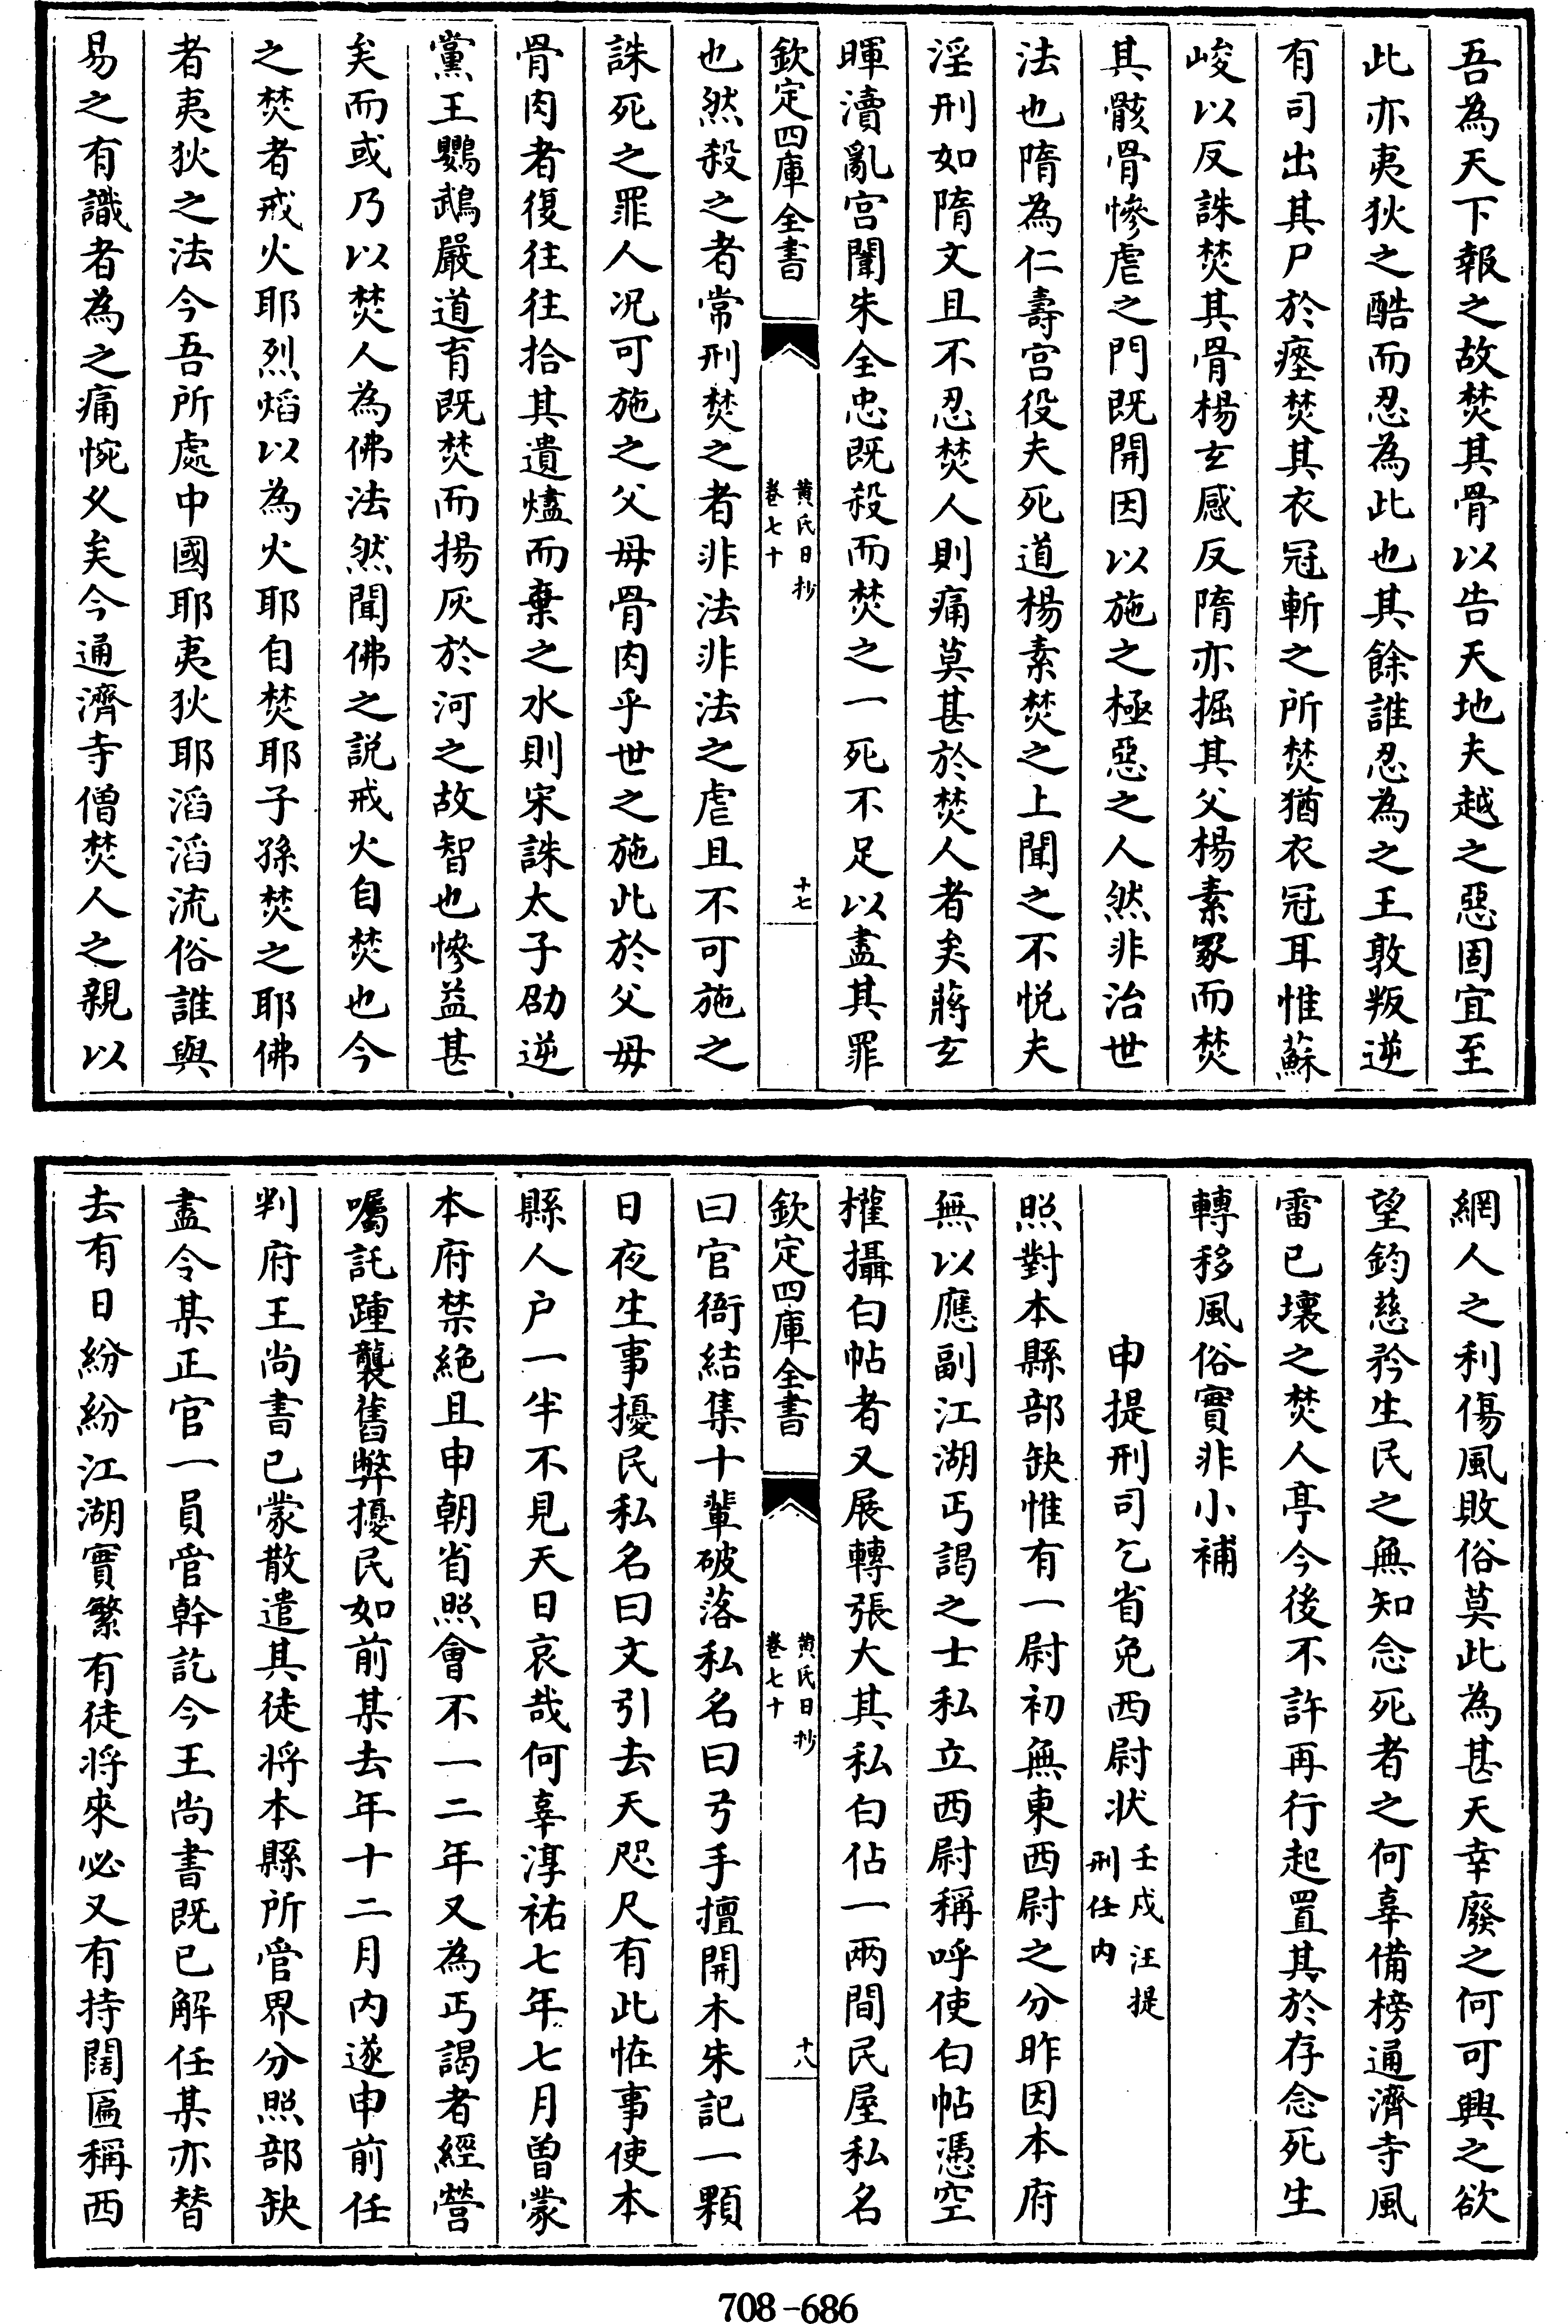 吾為天下報之故焚其骨以告天地夫越之惡固宜至
此亦夷狄之酷而忍為此也其餘誰忍為之王敦叛逆
有司出其尸於瘞焚其衣冠斬之所焚猶衣冠耳惟蘇
峻以反誅焚其骨楊玄感反隋亦掘其父楊素冢而焚
其骸骨慘虐之門既開因以施之極惡之人然非治世
法也隋為仁壽宮役夫死道楊素焚之上聞之不悅夫
淫刑如隋文且不忍焚人則痛莫甚於焚人者矣蔣玄
暉瀆亂宮闈朱全忠既殺而焚之一死不足以盡其罪
欽定四庫全書
黃氏日抄
卷七十
十七
也然殺之者常刑焚之者非法非法之虐且不可施之
誅死之罪人况可施之父母骨肉乎世之施此於父母
骨肉者復往往拾其遺燼而棄之水則宋誅太子劭逆
黨王鸚鵡嚴道育既焚而揚灰於河之故智也慘益甚
矣而或乃以焚人為佛法然聞佛之說戒火自焚也今
之焚者戒火耶烈熖以為火耶自焚耶子孫焚之耶佛
者夷狄之法今吾所處中國耶夷狄耶滔滔流俗誰與
易之有識者為之痛惋乆矣今通濟寺僧焚人之親以
網人之利傷風敗俗莫此為甚天幸廢之何可興之欲
望鈞慈矜生民之無知念死者之何辜備榜通濟寺風
雷已壞之焚人亭今後不許再行起置其於存念死生
轉移風俗實非小補
申提刑司乞省免西尉狀
壬戍汪提
刑任内
照對本縣部缺惟有一尉初無東西尉之分昨因本府
無以應副江湖丐謁之士私立西尉稱呼使白帖憑空
權攝白帖者又展轉張大其私白佔一兩間民屋私名
欽定四庫全書
黃氏日抄
卷七十
十八
曰官衙結集十輩破落私名曰弓手擅開木朱記一顆
日夜生事擾民私名曰文引去天咫尺有此恠事使本
縣人户一半不見天日哀哉何辜淳祐七年七月曽蒙
本府禁絶且申朝省照會不一二年又為丐謁者經營
囑託踵襲舊弊擾民如前某去年十二月内遂申前任
判府王尚書已蒙散遣其徒将本縣所管界分照部缺
盡令某正官一員管幹訖今王尚書既已解任某亦替
去有日紛紛江湖實繁有徒将來必又有持闊匾稱西
708-686